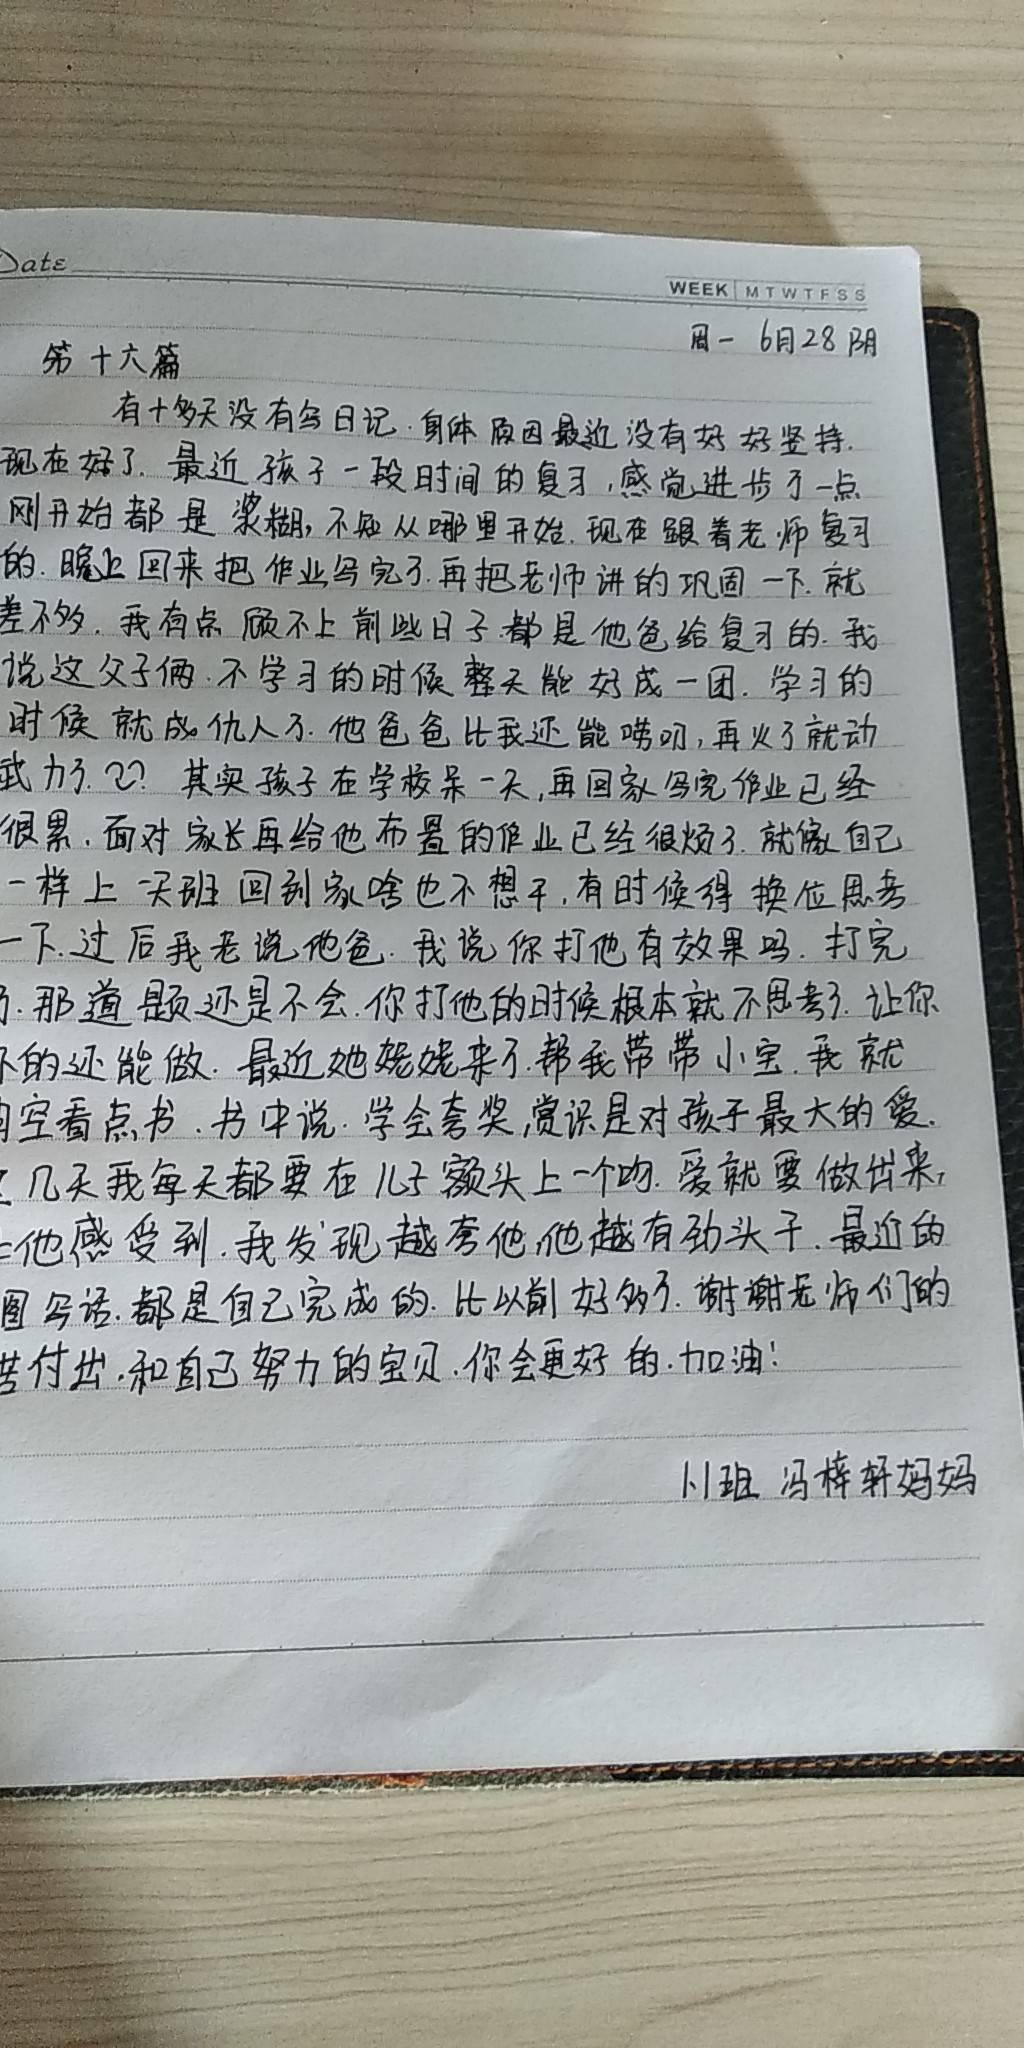 Date
WEEK M T W T F S S
周一 6月28 阴
第十六篇
有十多天没有写日记.身体原因最近没有好好坚持.
现在好了.最近孩子一段时间的复习,感觉进步了一点
刚开始都是浆糊,不知从哪里开始.现在跟着老师复习
的.晚上回来把作业写完了.再把老师讲的巩固一下.就
差不多.我有点顾不上前些日子.都是他爸给复习的.我
说这父子俩.不学习的时候整天能好成一团.学习的
时候就成仇人了.他爸爸比我还能唠叨,再火了就动
武力了.??其实孩子在学校呆一天,再回家写完作业已经
很累.面对家长再给他布置的作业已经很烦了.就像自己
一样上一天班回到家啥也不想干,有时候得换位思考
一下.过后我老说他爸.我说你打他有效果吗.打完
了.那道题还是不会.你打他的时候根本就不思考了.让你
的还能做.最近她姥姥来了.帮我带带小宝.我就
空看点书.书中说.学会夸奖,赏识是对孩子最大的爱.
几天我每天都要在儿子额头上一个吻.爱就要做出来,
他感受到.我发现越夸他,他越有劲头干.最近的
图写话.都是自己完成的.比以前好多了.谢谢老师们的
苦付出.和自己努力的宝贝.你会更好的.加油!
1.1班 冯梓轩妈妈